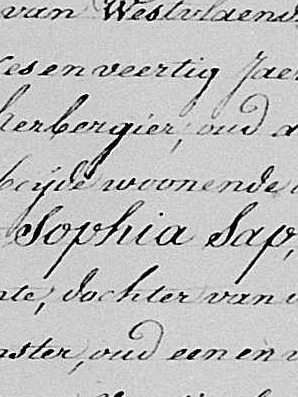 van Westvlaend
esenveertig Jae
herbergier, oud
beijde woonende
Sophia Sap,
nte, dochter van
nster, oud eenen